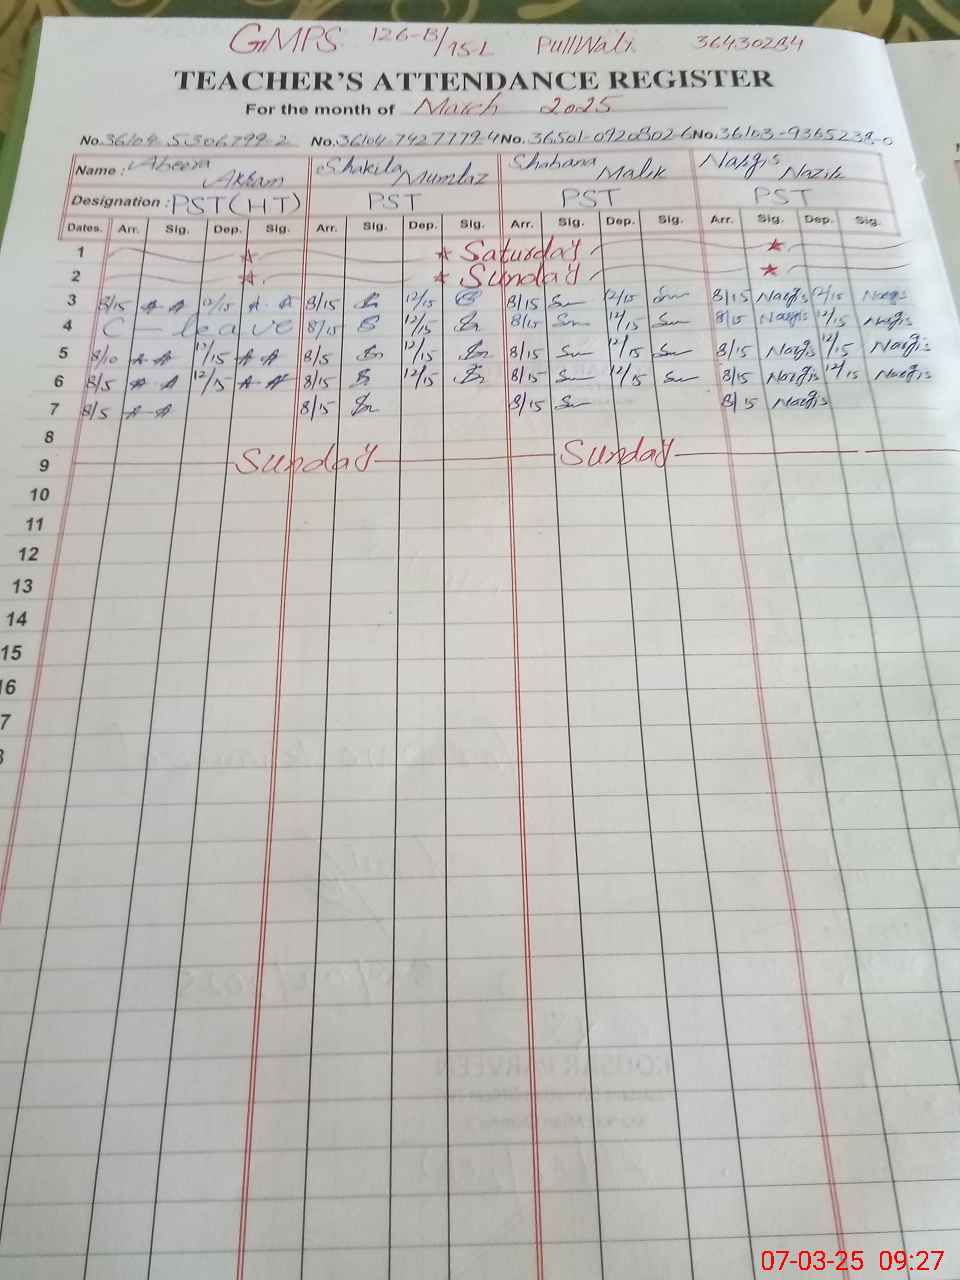 GMPS 126-B/15-L PullWali 36430284
TEACHER'S ATTENDANCE REGISTER
For the month of March 2025
No. 36104-5306799-2 No. 36104-7427779-4 No. 36501-0920802-6 No. 36103-9365238-0
Name : Abeera Akram Shakila Mumtaz Shabana Malik Nargis Nazik
Designation : PST(HT) PST PST PST
Dates. Arr. Sig. Dep. Sig. Arr. Sig. Dep. Sig. Arr. Sig. Dep. Sig. Arr. Sig. Dep. Sig.
1 Saturday
2 Sunday
3 8/15 12/15 8/15 12/15 8/15 12/15 8/15 Nargis 12/15 Nargis
4 C - leave 8/15 12/15 8/15 12/15 8/15 Nargis 12/15 Nargis
5 8/10 12/15 8/5 12/15 8/15 12/15 8/15 Nargis 12/15 Nargis
6 8/5 12/15 8/15 12/15 8/15 12/15 8/15 Nargis 12/15 Nargis
7 8/5 8/15 8/15 8/15 Nargis
8
9 Sunday Sunday
10
11
12
13
14
15
16
7
07-03-25 09:27